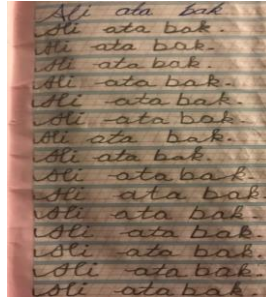 Ali ata bak
Ali ata bak.
Ali ata bak.
Ali ata bak.
Ali ata bak.
Ali ata bak.
Ali ata bak.
Ali ata bak.
Ali ata bak.
Ali ata bak.
Ali ata bak.
Ali ata bak.
Ali ata bak.
Ali ata bak.
Ali ata bak.